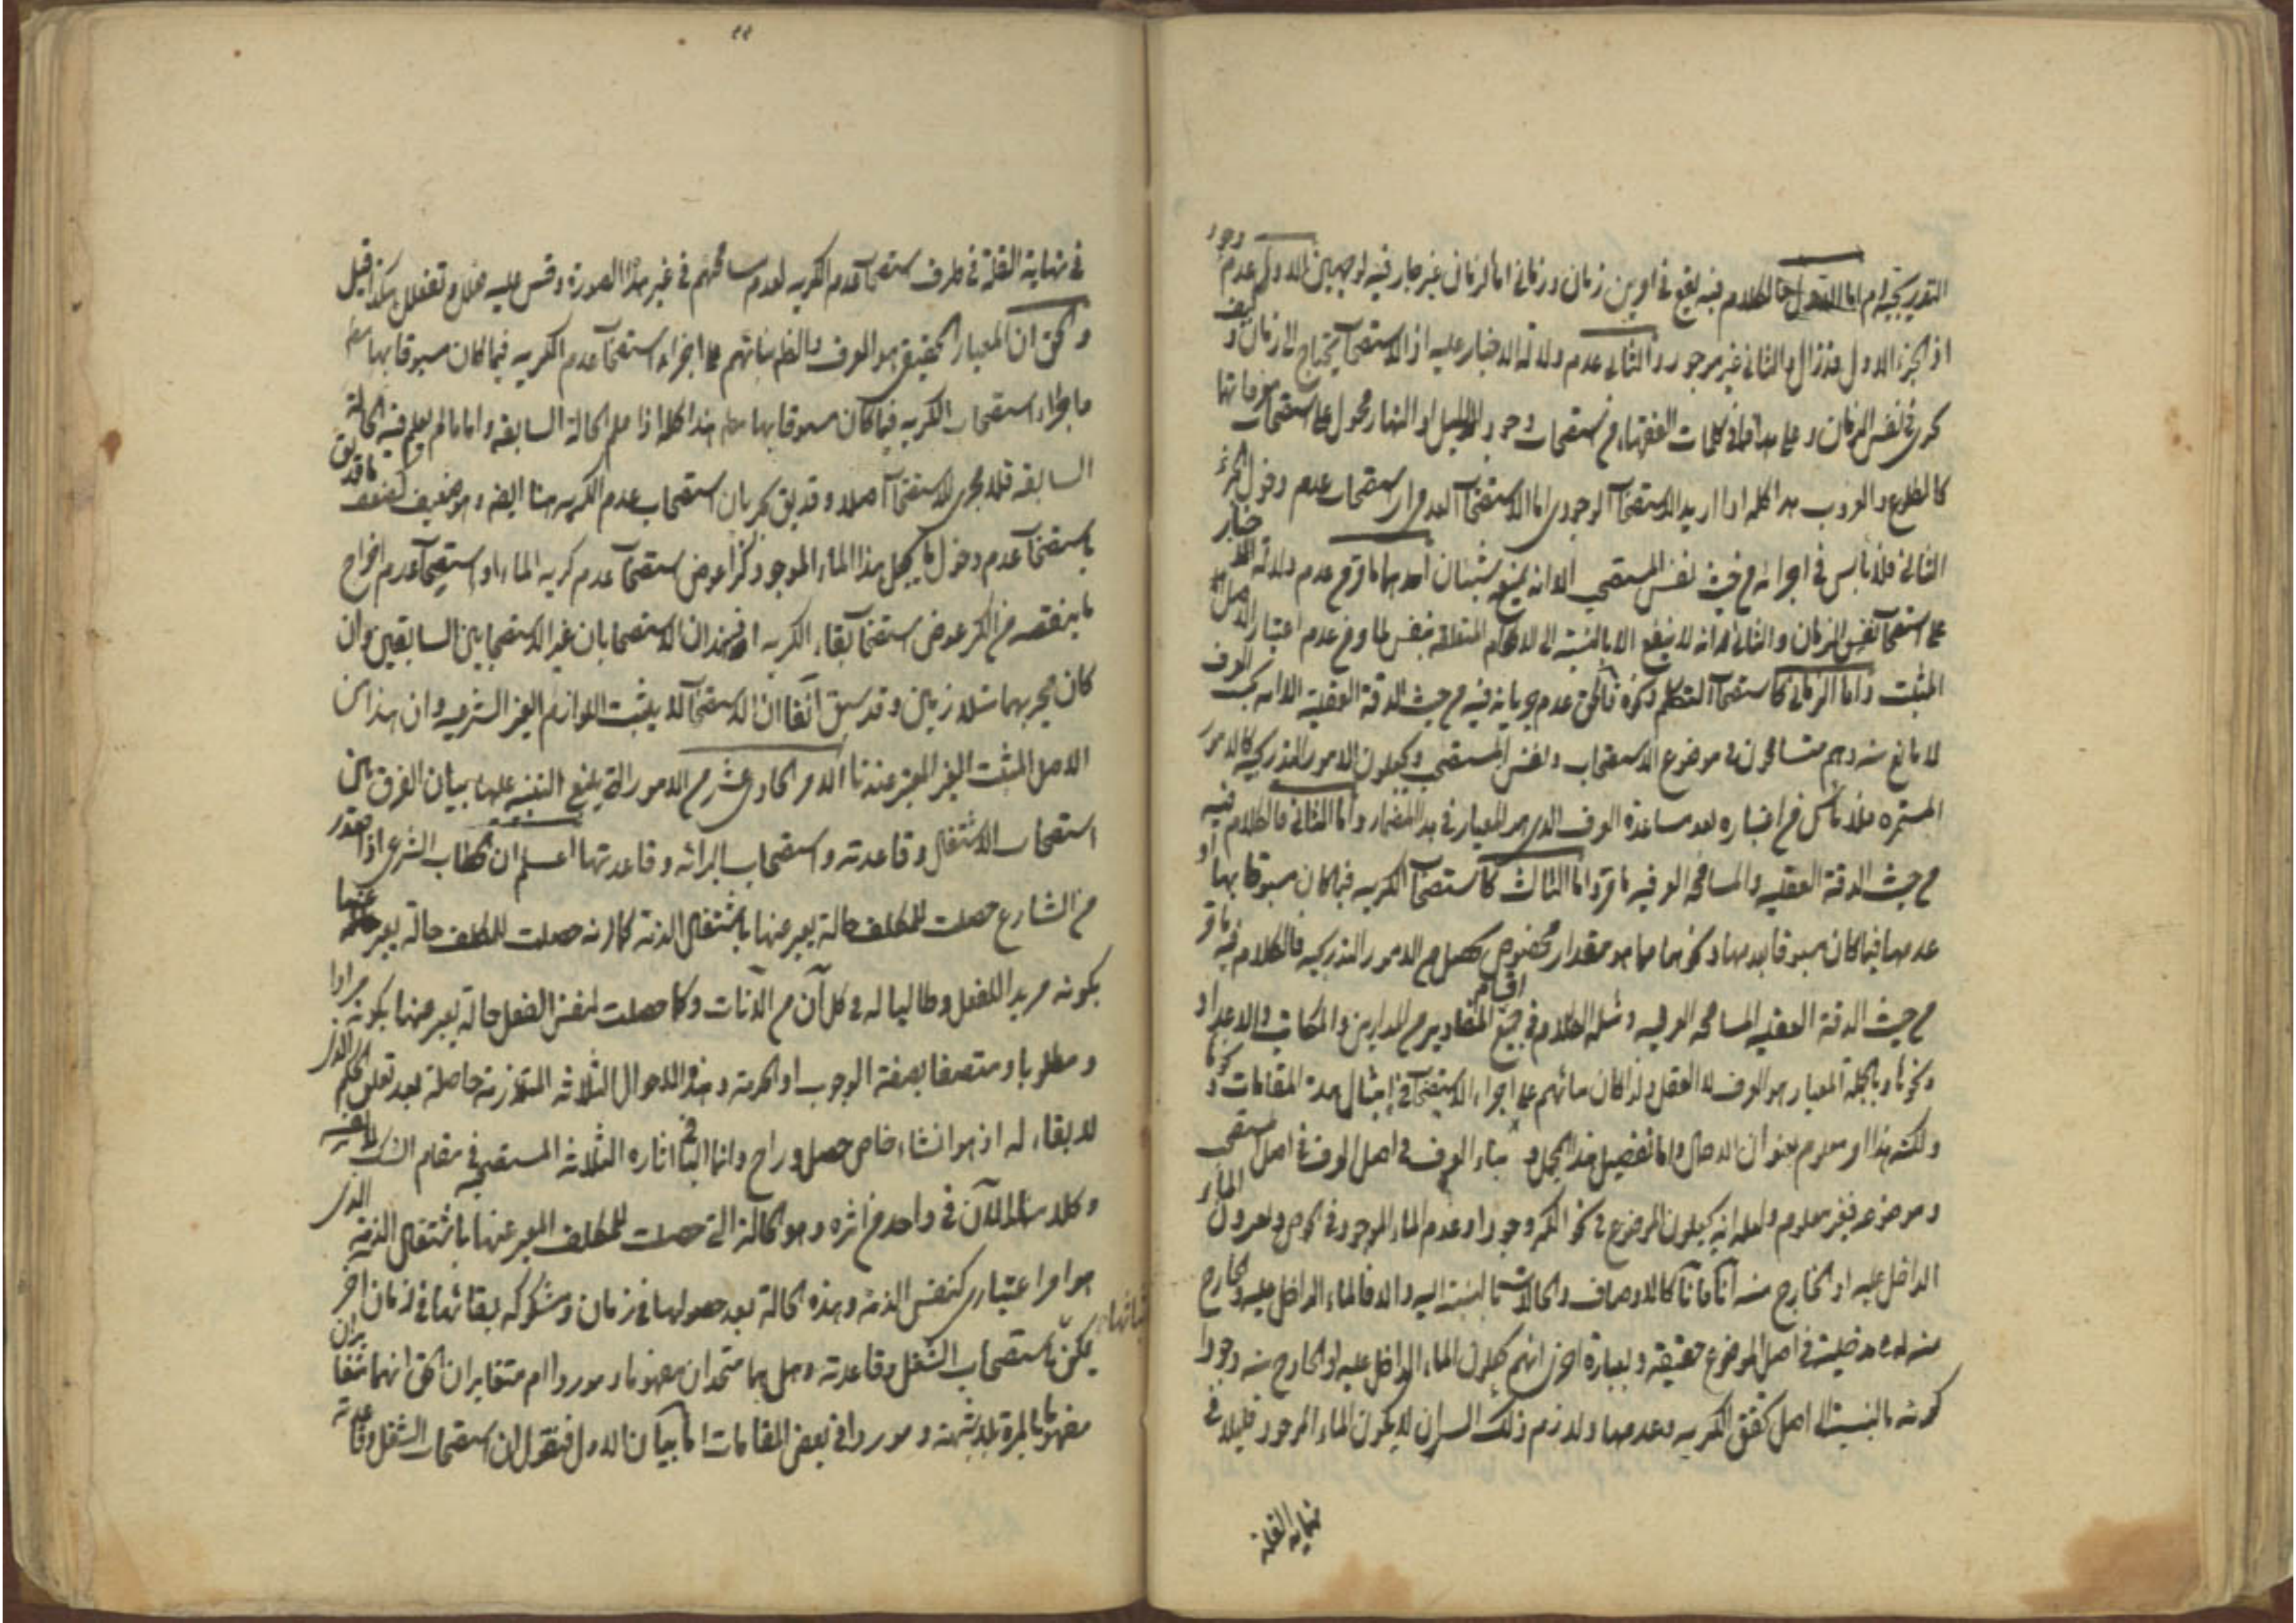 التدريجية ام اما الاول فالكلام فيه يقع في امرين زمان وزماني اما الزمان فغير جار فيه لوجهين الاول عدم وجود
اذ الجزء الاول قد زال والثاني غير موجود والثاني عدم دلالة الاخبار عليه اذ الاستصحاب يحتاج الى زمان و كيف
كرى في نفس الزمان وعلى هذا فما في كلمات الفقهاء من استصحاب وجود الليل او النهار محمول على استصحاب
كالطلوع والغروب هذا كله اذا اريد الاستصحاب الوجودي اما الاستصحاب العدمي استصحاب عدم دخول الجزء
الثاني فلا بأس في اجرائه من حيث نفس المستصحب الا انه شيئان احدهما ما مر من عدم دلالة الاخبار
على استصحاب نفس الزمان والثاني انه لا ينفع الا بالنسبة الى الاحكام المتعلقة بنفس لما مر من عدم اعتبار الاصل
المثبت واما الزماني كاستصحاب التكلم ونحوه فالحق عدم جريانه فيه من حيث الدقة العقلية الا انه بحسب العرف
لا مانع منه وهم متسامحون في موضوع الاستصحاب ونفس المستصحب ويجعلون الامور التدريجية كالامور
المستمرة فلا بأس في اعتباره بعد مساعدة العرف الذي هو المعيار في هذا المضمار واما الثاني فالكلام فيه
من حيث الدقة العقلية والمسامحة العرفية ما مر واما الثالث كاستصحاب الكرية فيما كان مسبوقا بها او
عدمها فيما كان مسبوقا بعدمها ونحوهما مما هو مقدار مخصوص يحصل من الامور التدريجية فالكلام فيه ما مر
من حيث الدقة العقلية المسامحة العرفية ومثله الكلام في جميع اقسام المقادير من الموازين والمكاييل والاعداد
ونحوها وبالجملة المعيار هو العرف لا العقل ولذا كان بنائهم على اجراء الاستصحاب في امثال هذه المقامات
ولكنه هذا امر معلوم بعنوان الاجمال واما تفصيل هذا المجمل و بناء العرف في اصل المستصحب
وموضوعه فغير معلوم ولعله انهم يجعلون الموضوع في نحو الكر وجودا وعدما الماء الموجود في الحوض ويعدون الماء
الداخل عليه او الخارج منه آنا فآنا كالاوصاف والحالات بالنسبة اليه والا فالماء الداخل عليه والخارج
منه له مدخلية في اصل الموضوع حقيقة وبعبارة اخرى انهم يجعلون الماء الداخل عليه او الخارج منه وجودا
كعدمه بالنسبة الى اصل تحقق الكرية وعدمها ولازم ذلك ان لا يكون الماء الموجود قليلا في
نهاية القلة
٩٩
في نهاية القلة في طرف استصحاب عدم الكرية لعدم مسامحتهم في غير هذا الصورة وقس عليه هكذا قيل
والحق ان المعيار الحقيقي هو العرف والظاهر بنائهم على اجراء استصحاب عدم الكرية فيما كان مسبوقا بها
باجراء استصحاب الكرية فيما كان مسبوقا بها هذا كله اذا علم الحالة السابقة واما ما لم يعلم فيه الحالة
السابقة فلا مجرى للاستصحاب اصلا وقد يق بجريان استصحاب عدم الكرية هنا ايضا وهو ضعيف كضعف ما قد يق
باستصحاب عدم دخول ما يجعل هذا الماء الموجود كرا عوض استصحاب عدم كرية الماء او استصحاب عدم اخراج
ما ينقصه من الكر عوض استصحاب بقاء الكرية اذ هذان الاستصحابان غير الاستصحابين السابقين وان
كان مجريهما متلازمين وقد سبق آنفا ان الاستصحاب لا يثبت اللوازم الغير الشرعية وان هذا من
الاصل المثبت الغير المعتبر عندنا الامر الحادي عشر من الامور التي ينبغي التنبيه عليها بيان الفرق بين
استصحاب الاشتغال وقاعدته واستصحاب البرائة وقاعدتها اعلم ان الخطاب الشرعي اذا صدر
من الشارع حصلت للمكلف حالة يعبر عنها باشتغال الذمة كما انه حصلت للمكلف حالة يعبر عنها
بكونه مريدا للفعل وطالبا له في كل آن من الآنات وكما حصلت لنفس الفعل حالة يعبر عنها بكونه مرادا
ومطلوبا ومتصفا بصفة الوجوب او الحرمة وهذه الاحوال الثلاثة المتلازمة حاصلة بعد تعلق الحكم الذي
لا بقاء له اذ هو انشاء خاص حصل وراح وانما الباقي اثاره الثلاثة المستصحبة في مقام الشك
وكلامنا الآن في واحد من اثره وهو الحالة التي حصلت للمكلف المعبر عنها باشتغال الذمة الذي
هو امر اعتباري كنفس الذمة وهذه الحالة بعد حصولها في زمان ومشكوكية بقائها في زمان آخر
يمكن اثباتها باستصحاب الشغل وقاعدته وهل هما متحدان مفهوما وموردا ام متغايران الحق انهما متغايران
مفهوما بالمرة بلا شبهة وموردا في بعض المقامات اما بيان الاول فنقول ان استصحاب الشغل وقاعدته